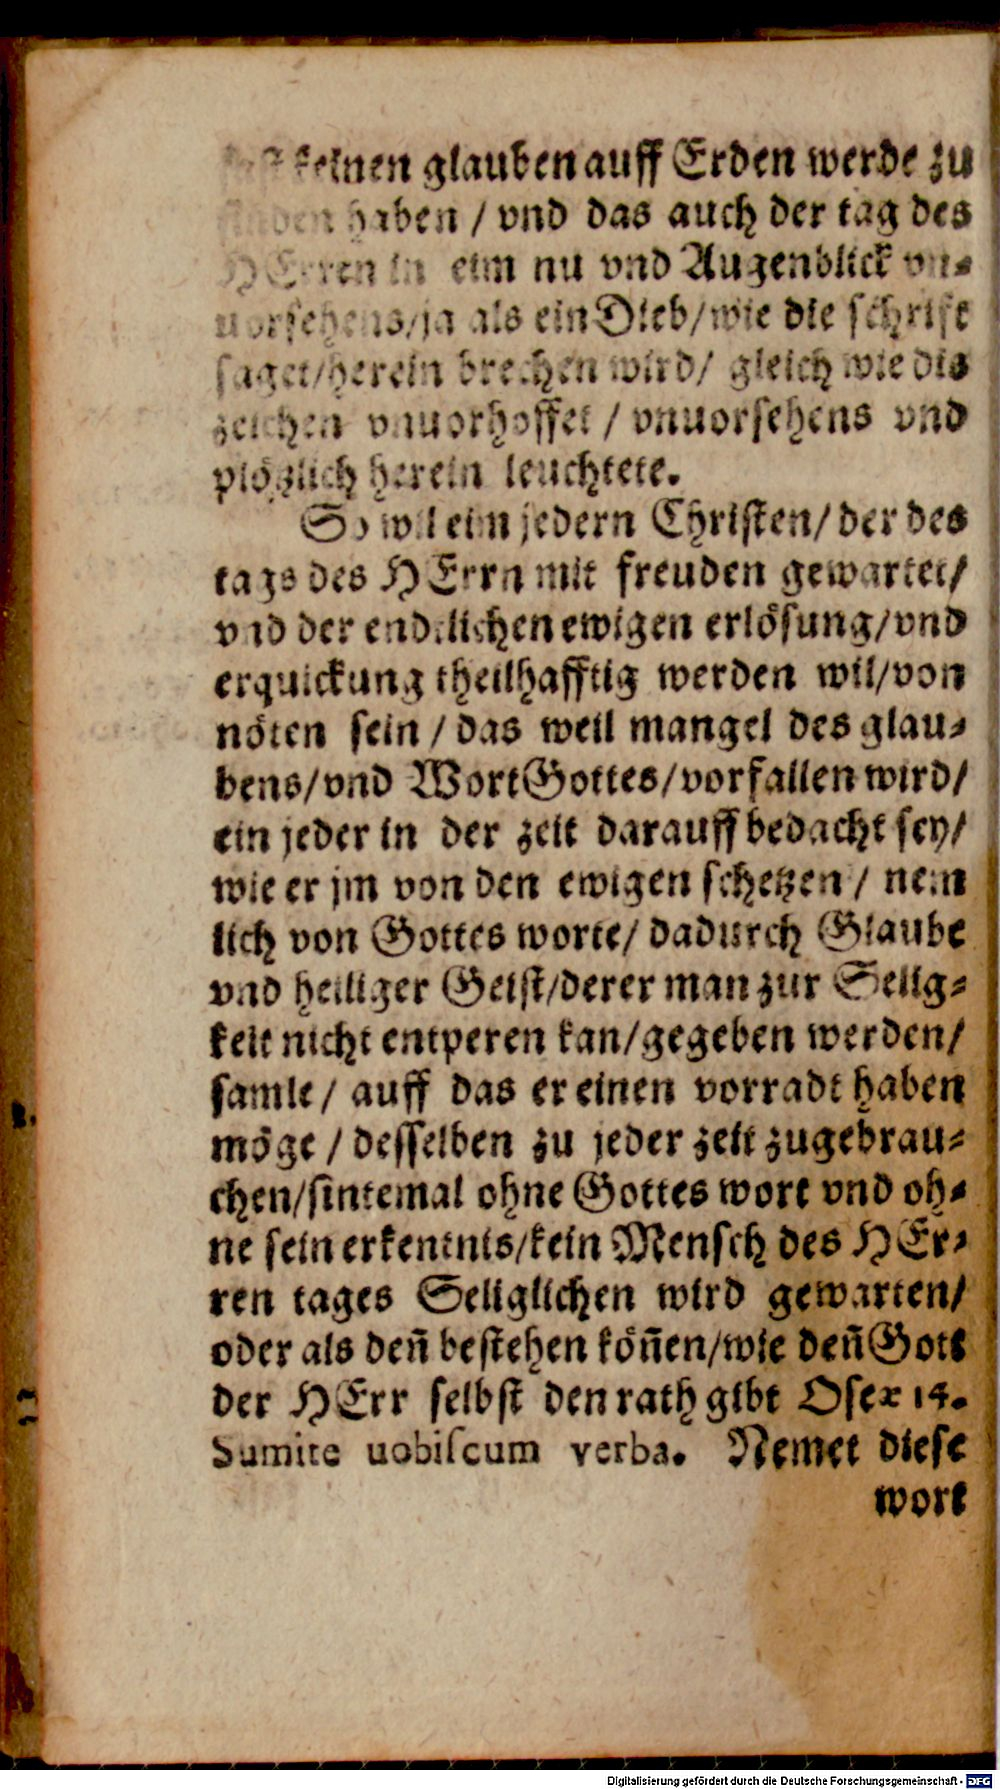 keinen glauben auff Erden werde zu
finden haben / vnd das auch der tag des
HErren in eim nu vnd Augenblick vn-
uorsehens/ja als ein Dieb/wie die schrift
saget/herein brechen wird/ gleich wie dis
zeichen vnuorhoffet / vnuorsehens vnd
plötzlich herein leuchtete.
So wil eim jedern Christen/ der des
tags des HErrn mit freuden gewartet/
vnd der endtlichen ewigen erlösung/vnd
erquickung theilhafftig werden wil/von
nöten sein / das weil mangel des glau-
bens/vnd Wort Gottes/vorfallen wird/
ein jeder in der zeit darauff bedacht sey/
wie er jm von den ewigen schetzen / nem
lich von Gottes worte/ dadurch Glaube
vnd heiliger Geist/derer man zur Selig-
keit nicht entperen kan/gegeben werden/
samle / auff das er einen vorradt haben
möge / desselben zu jeder zeit zugebrau-
chen/sintemal ohne Gottes wort vnd oh-
ne sein erkentnis/kein Mensch des HEr-
ren tages Seliglichen wird gewarten/
oder als deñ bestehen köñen/wie deñ Gott
der HErr selbst den rath gibt Oseæ 14.
Sumite uobiscum verba. Nemet diese
wort
Digitalisierung gefördert durch die Deutsche Forschungsgemeinschaft - DFG